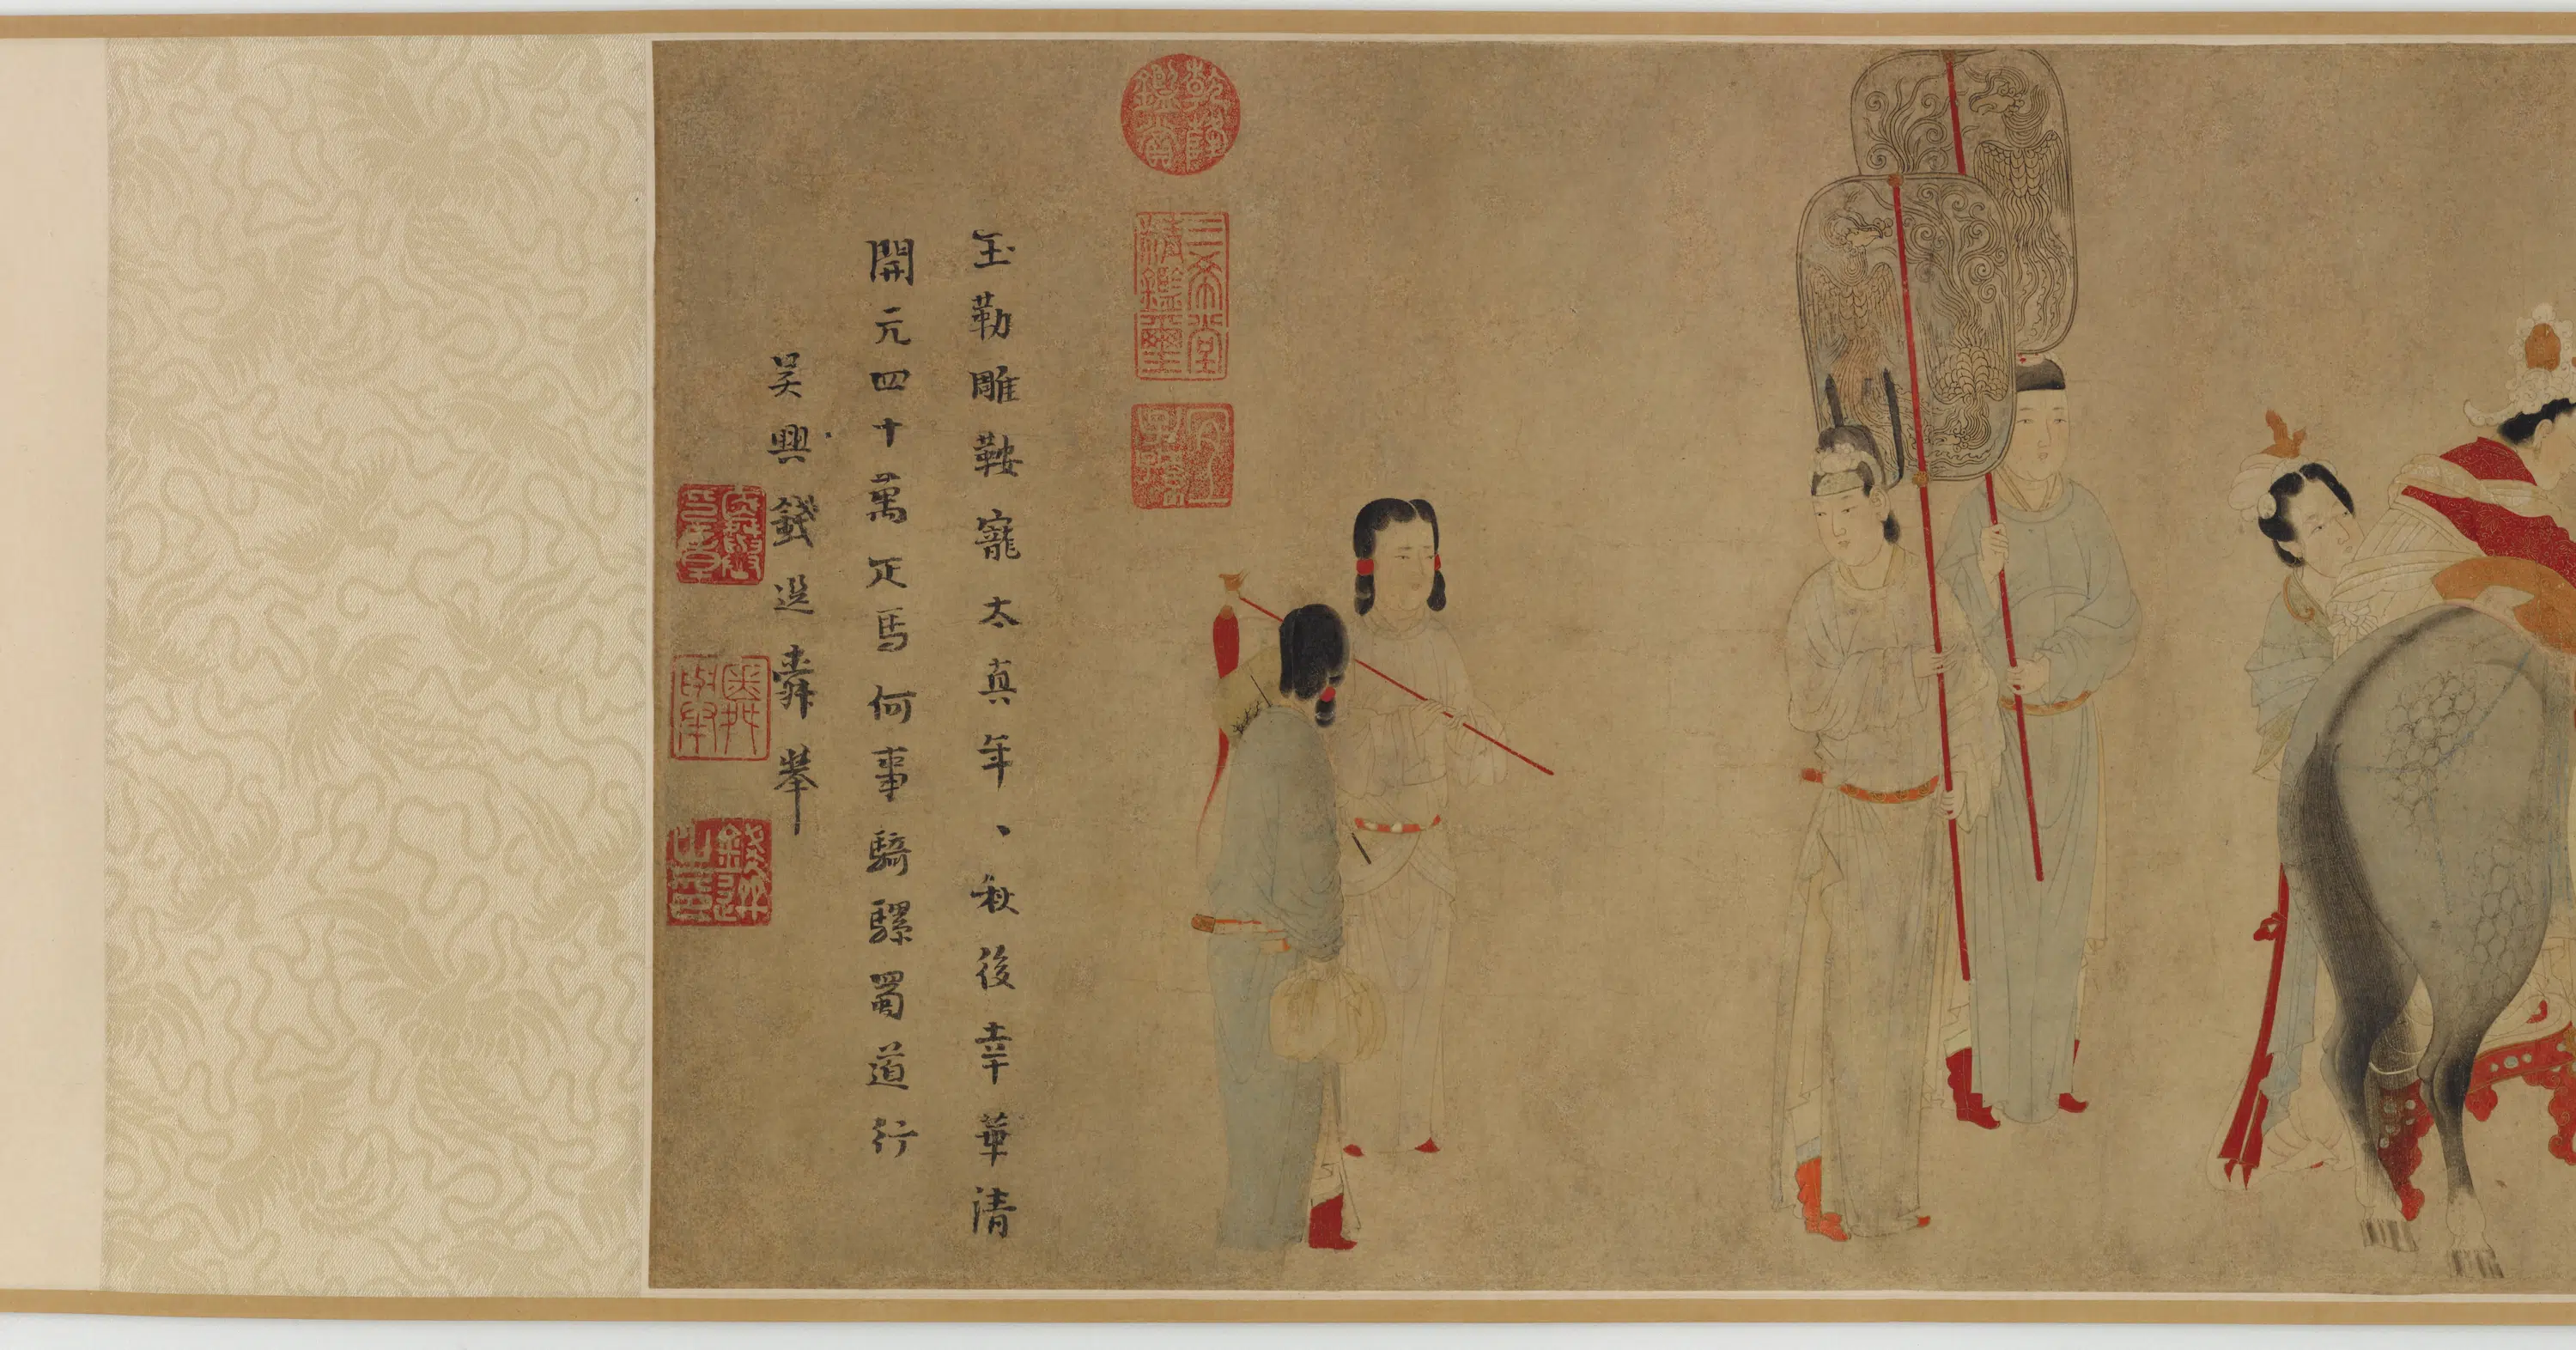 玉勒雕鞍寵太真年丶秋後幸華清
開元四十萬疋馬何事騎騾蜀道行
吳興錢選舜舉
乾隆鑑賞
三希堂精鑑璽
宜子孫
舜舉印章
錢選之印